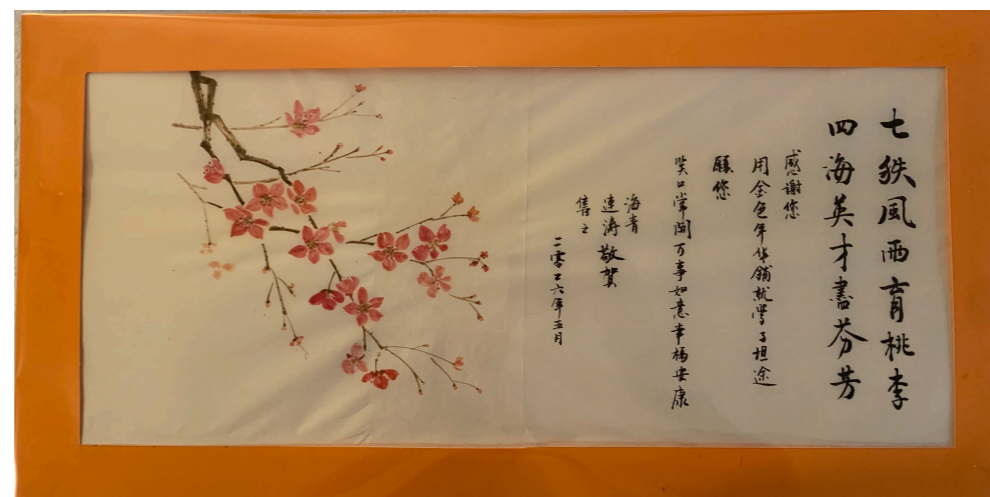 七秩風雨育桃李
四海英才盡芬芳
感謝您
用金色年华鋪就學子坦途
願您
笑口常開万事如意幸福安康
海青
連濤敬賀
二零二六年五月